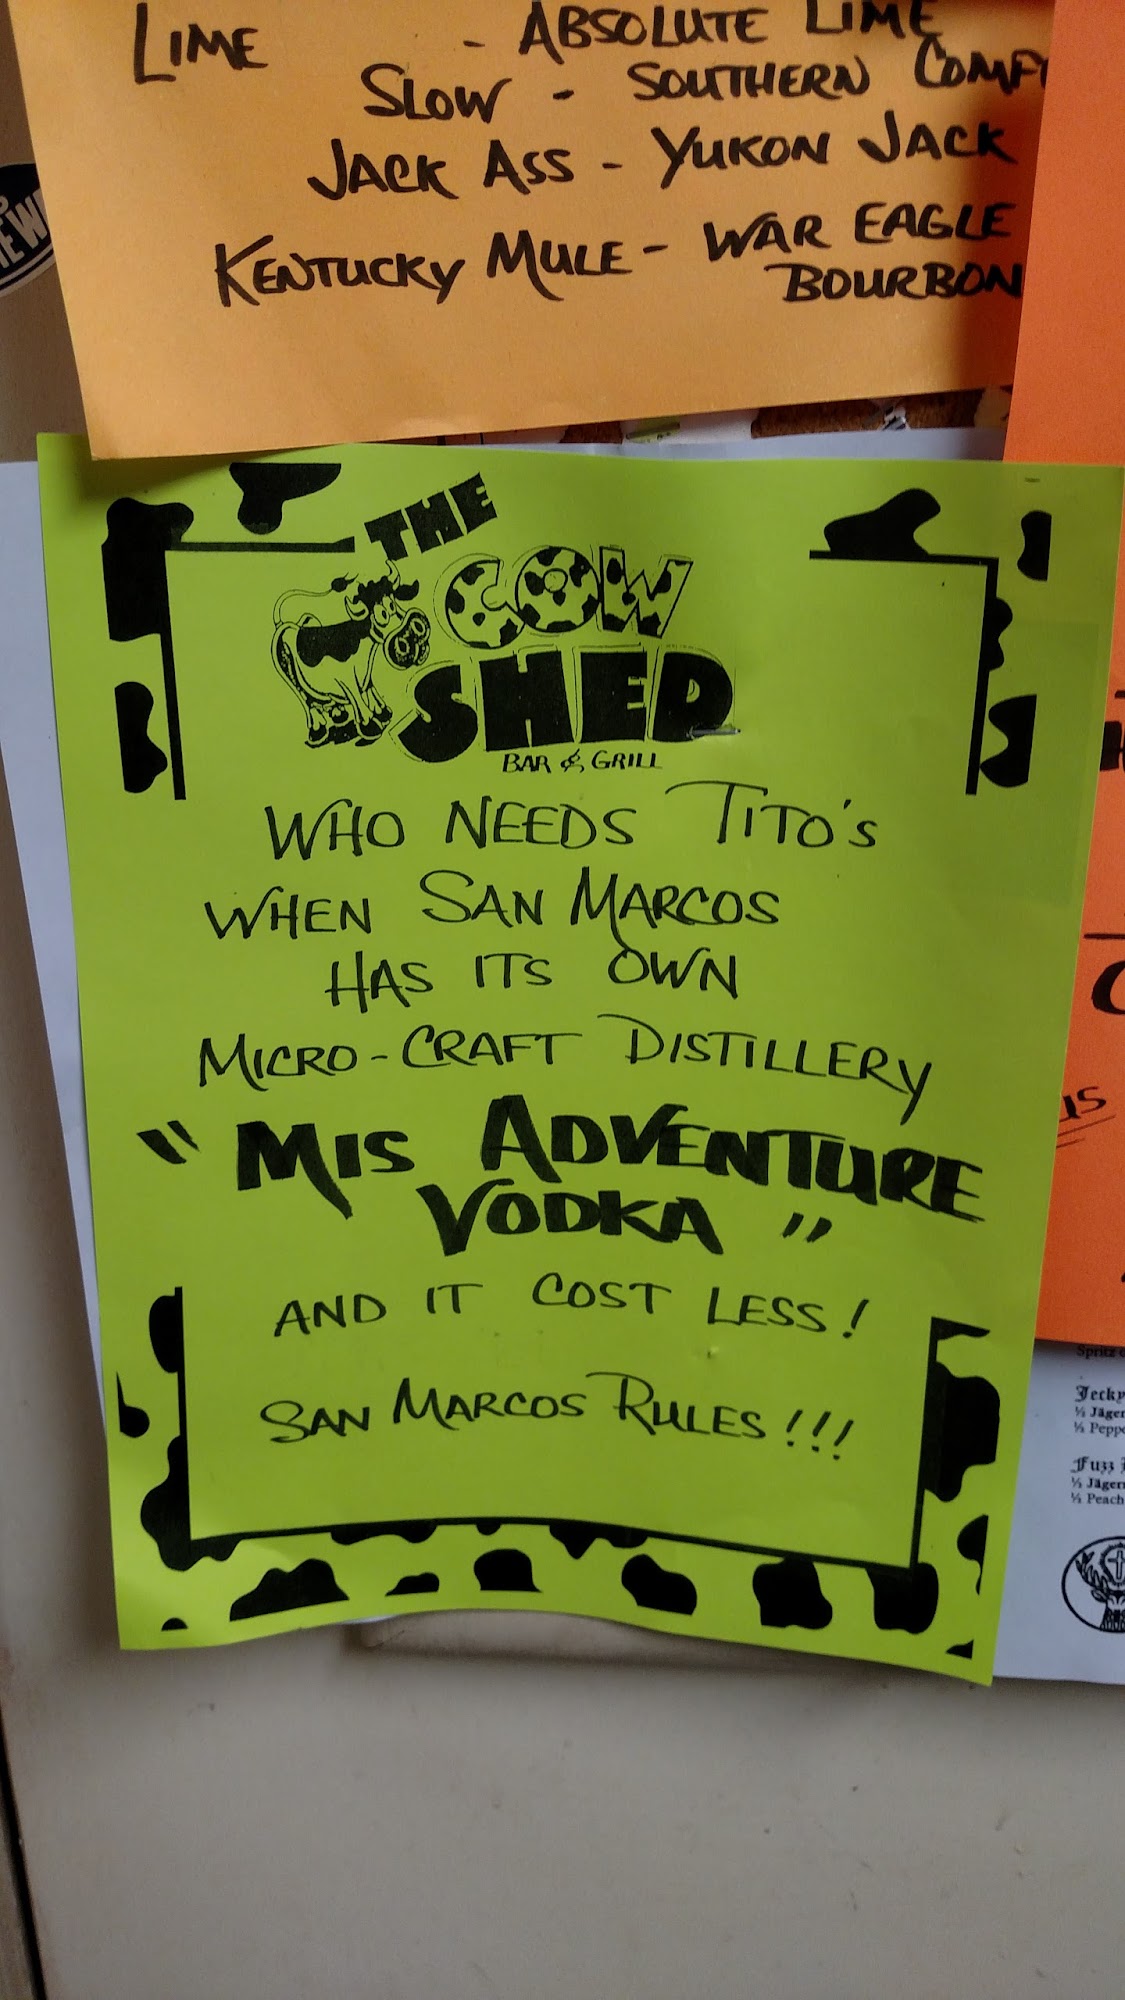 LIME - ABSOLUTE LIME
SLOW - SOUTHERN COMF
JACK ASS - YUKON JACK
KENTUCKY MULE - WAR EAGLE
BOURBON
THE
COW
SHED
BAR & GRILL
WHO NEEDS TITO'S
WHEN SAN MARCOS
HAS ITS OWN
MICRO-CRAFT DISTILLERY
"MIS ADVENTURE
VODKA"
AND IT COST LESS!
SAN MARCOS RULES!!!
Spritz
Jecky
½ Jäger
½ Pepp
Fuzz
½ Jäger
½ Peach